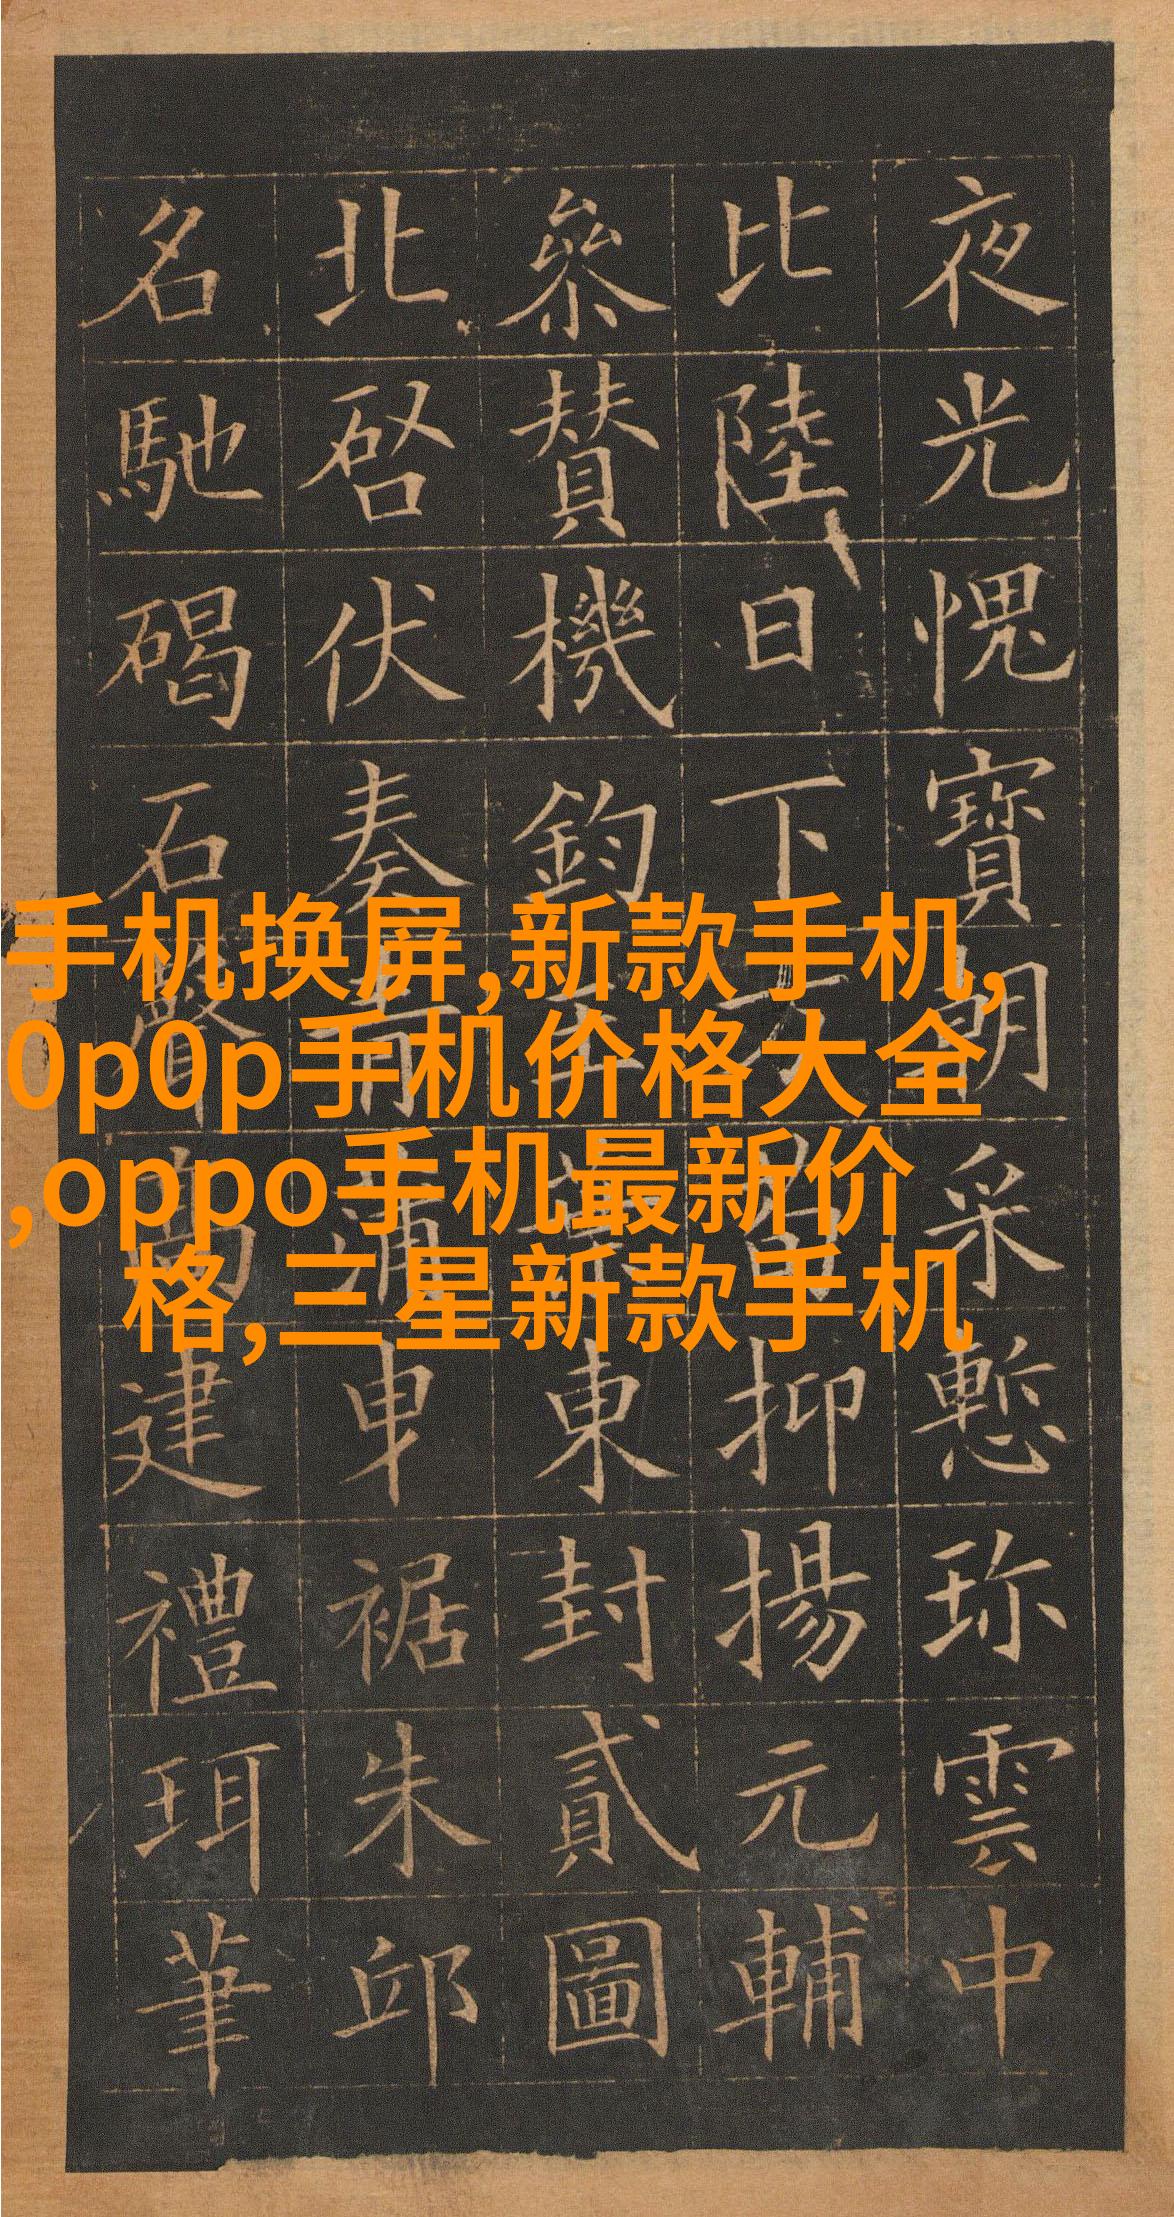 夜光愧寶朗采慙珎雲中
比陸日下抑揚元輔
參賛機鈞東封貳圖
北啓伏奏青蒲曳裾朱邸
名馳碣石聲高建禮珥筆
手机换屏,新款手机,
0p0p手机价格大全
,oppo手机最新价
格,三星新款手机